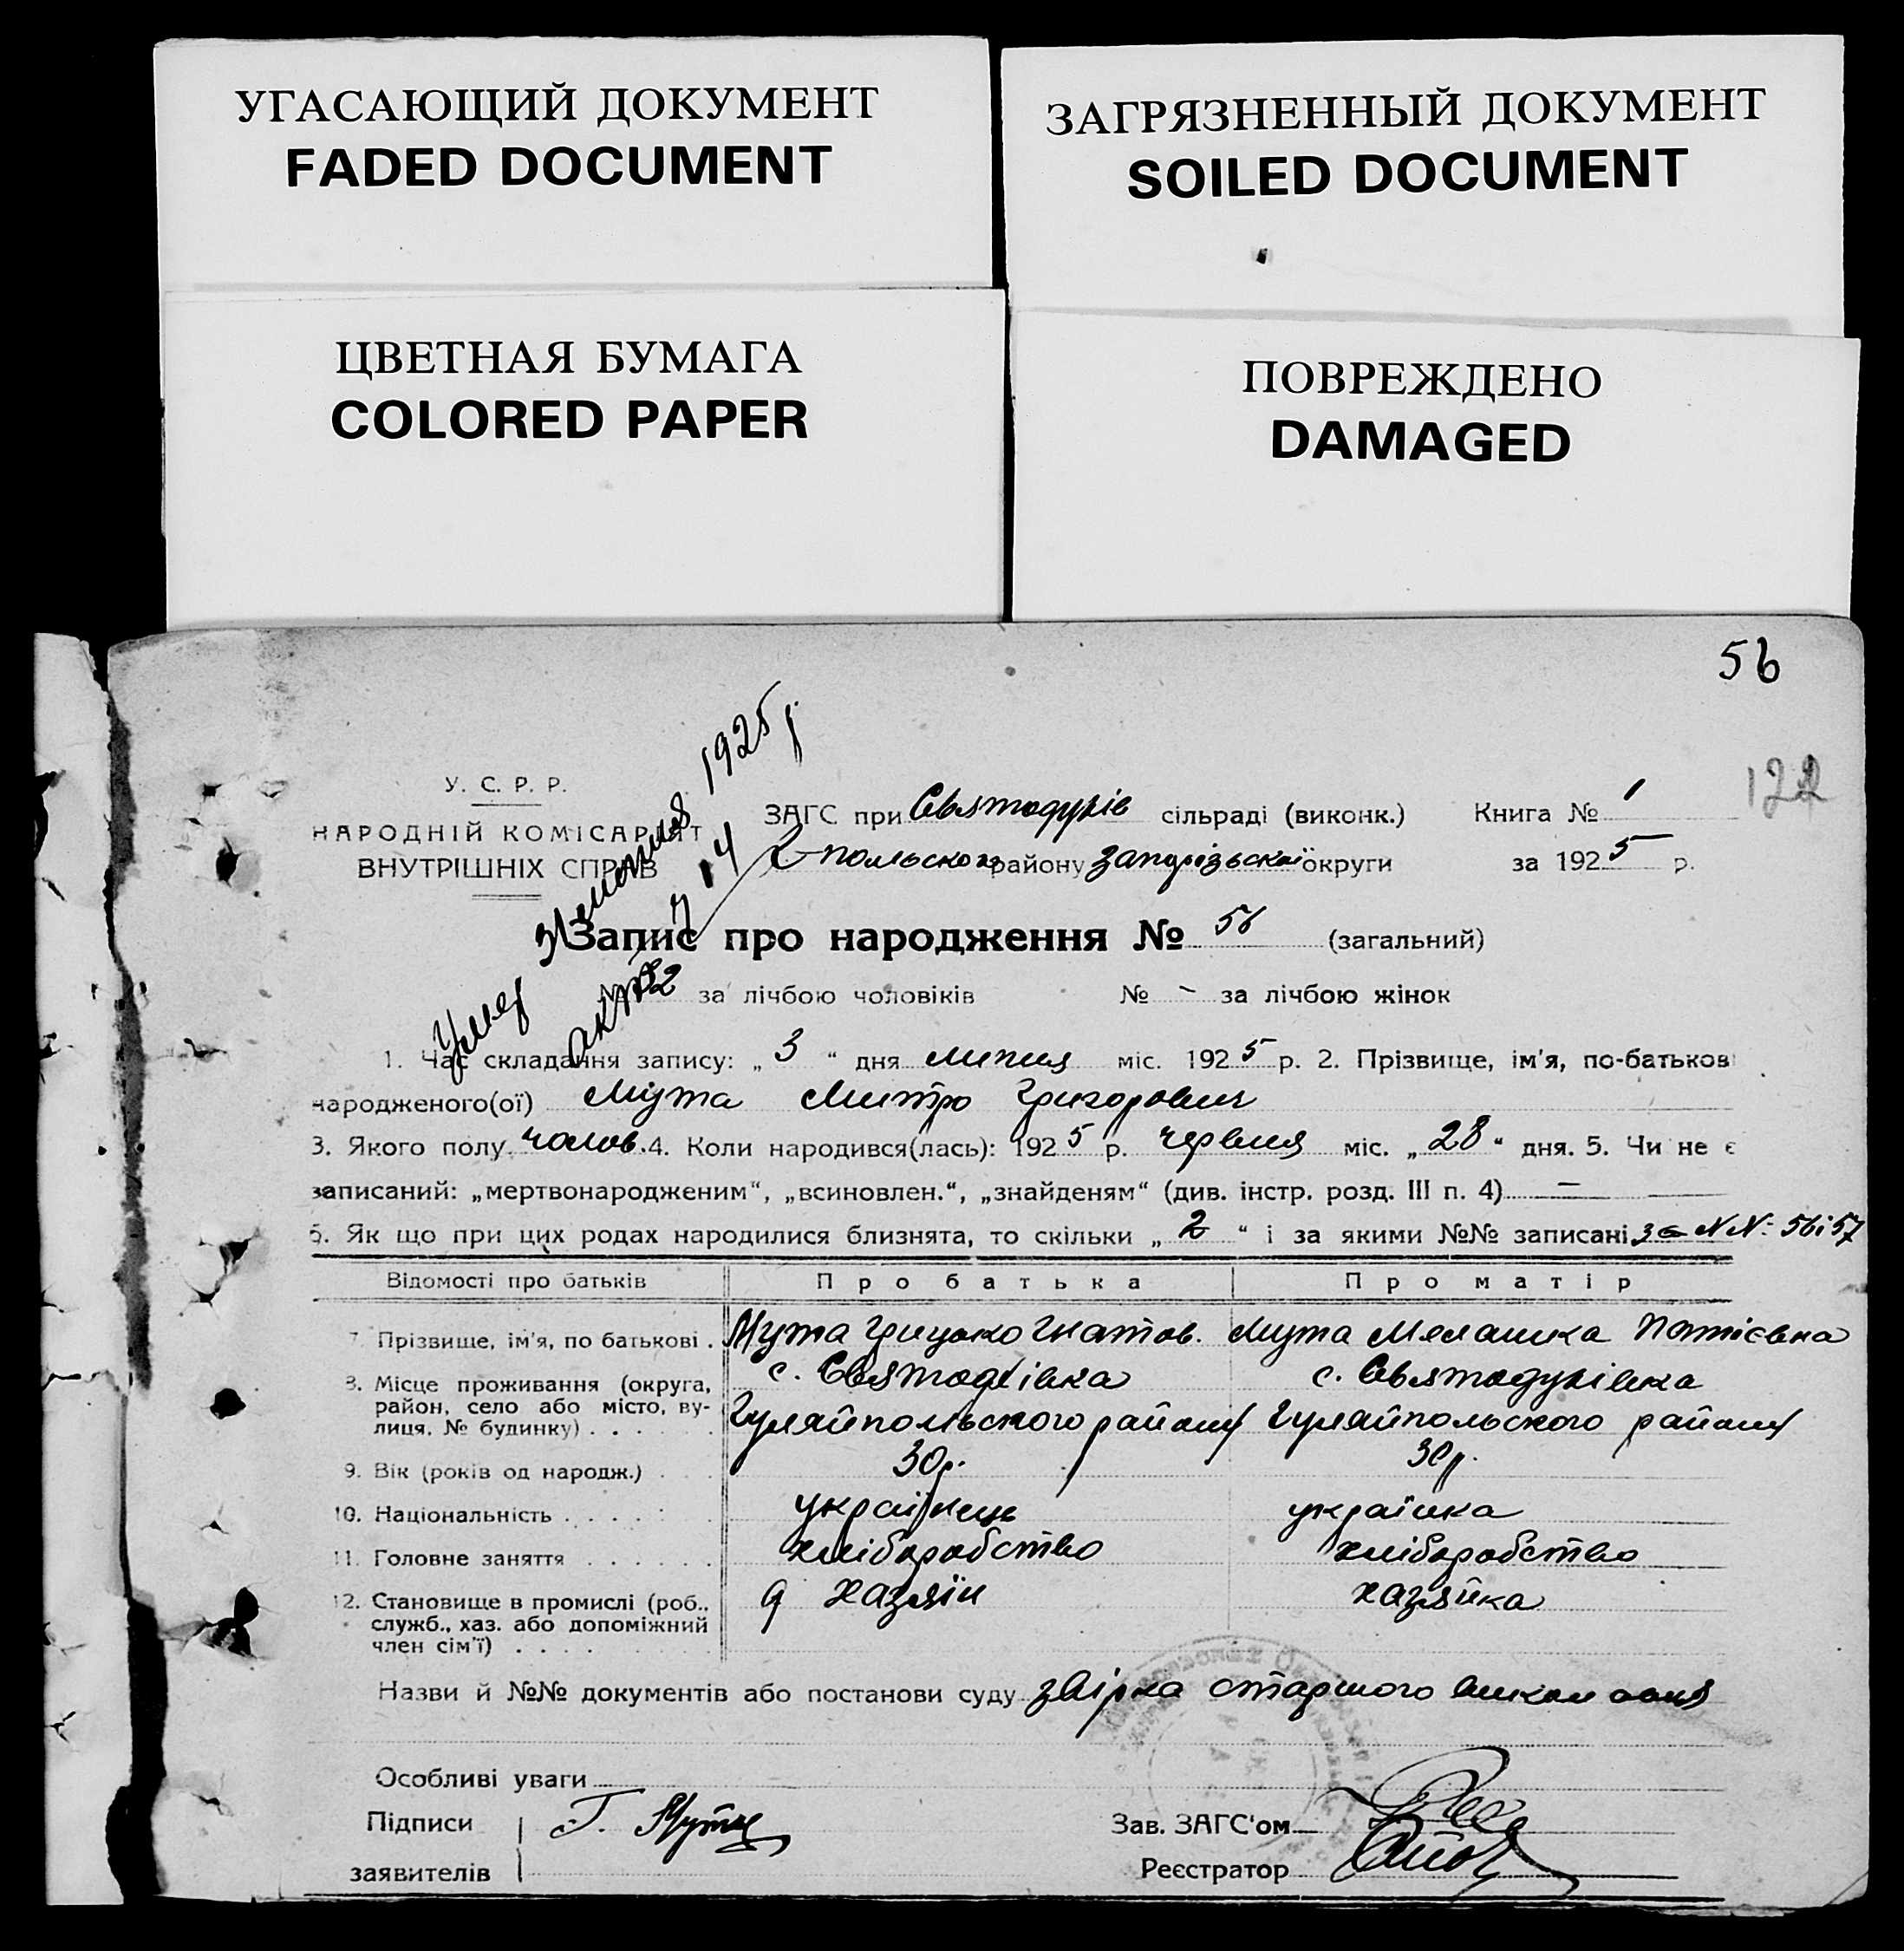 УГАСАЮЩИЙ ДОКУМЕНТ
FADED DOCUMENT
ЗАГРЯЗНЕННЫЙ ДОКУМЕНТ
SOILED DOCUMENT
ЦВЕТНАЯ БУМАГА
COLORED PAPER
ПОВРЕЖДЕНО
DAMAGED
56
122
У. С. Р. Р.
НАРОДНІЙ КОМІСАРІЯТ
ВНУТРІШНІХ СПРАВ
Умер 31 1925 р
акт 14
ЗАГС при Святодухів сільраді (виконк.) Книга № 1
Г-польского району Запорізської округи за 1925 р.
Запис про народження № 56 (загальний)
№ 32 за лічбою чоловіків № - за лічбою жінок
1. Час складання запису: „ 3 “ дня липня міс. 1925 р. 2. Прізвище, ім'я, по-батьков
народженого(ої) Мута Митро Григорович
3. Якого полу чолов. 4. Коли народився(лась): 1925 р. червня міс. „ 28 “ дня. 5. Чи не є
записаний: „мертвонародженим“, „всиновлен.“, „знайденям“ (див. інстр. розд. III п. 4) —
6. Як що при цих родах народилися близнята, то скільки „ 2 “ і за якими №№ записані за NN: 56 і 57
Відомості про батьків Про батька Про матір
7. Прізвище, ім'я, по батькові . Мута Грицько Гнатов. Мута Мелашка Потієвна
8. Місце проживання (округа, с. Святодухівка с. Святодухівка
район, село або місто, ву- Гуляйпольского району Гуляйпольского району
лиця, № будинку) . . . .
9. Вік (років од народж.) . . . 30 р. 30 р.
10. Національність . . . . . українець українка
11. Головне заняття . . . . . . хліборобство хліборобство
12. Становище в промислі (роб., хазяїн хазяйка
служб., хаз. або допоміжний
член сім'ї) . . . .
Назви й №№ документів або постанови суду звірка старшого
Особливі уваги
Підписи Г. Мута Зав. ЗАГС'ом
заявителів Реєстратор